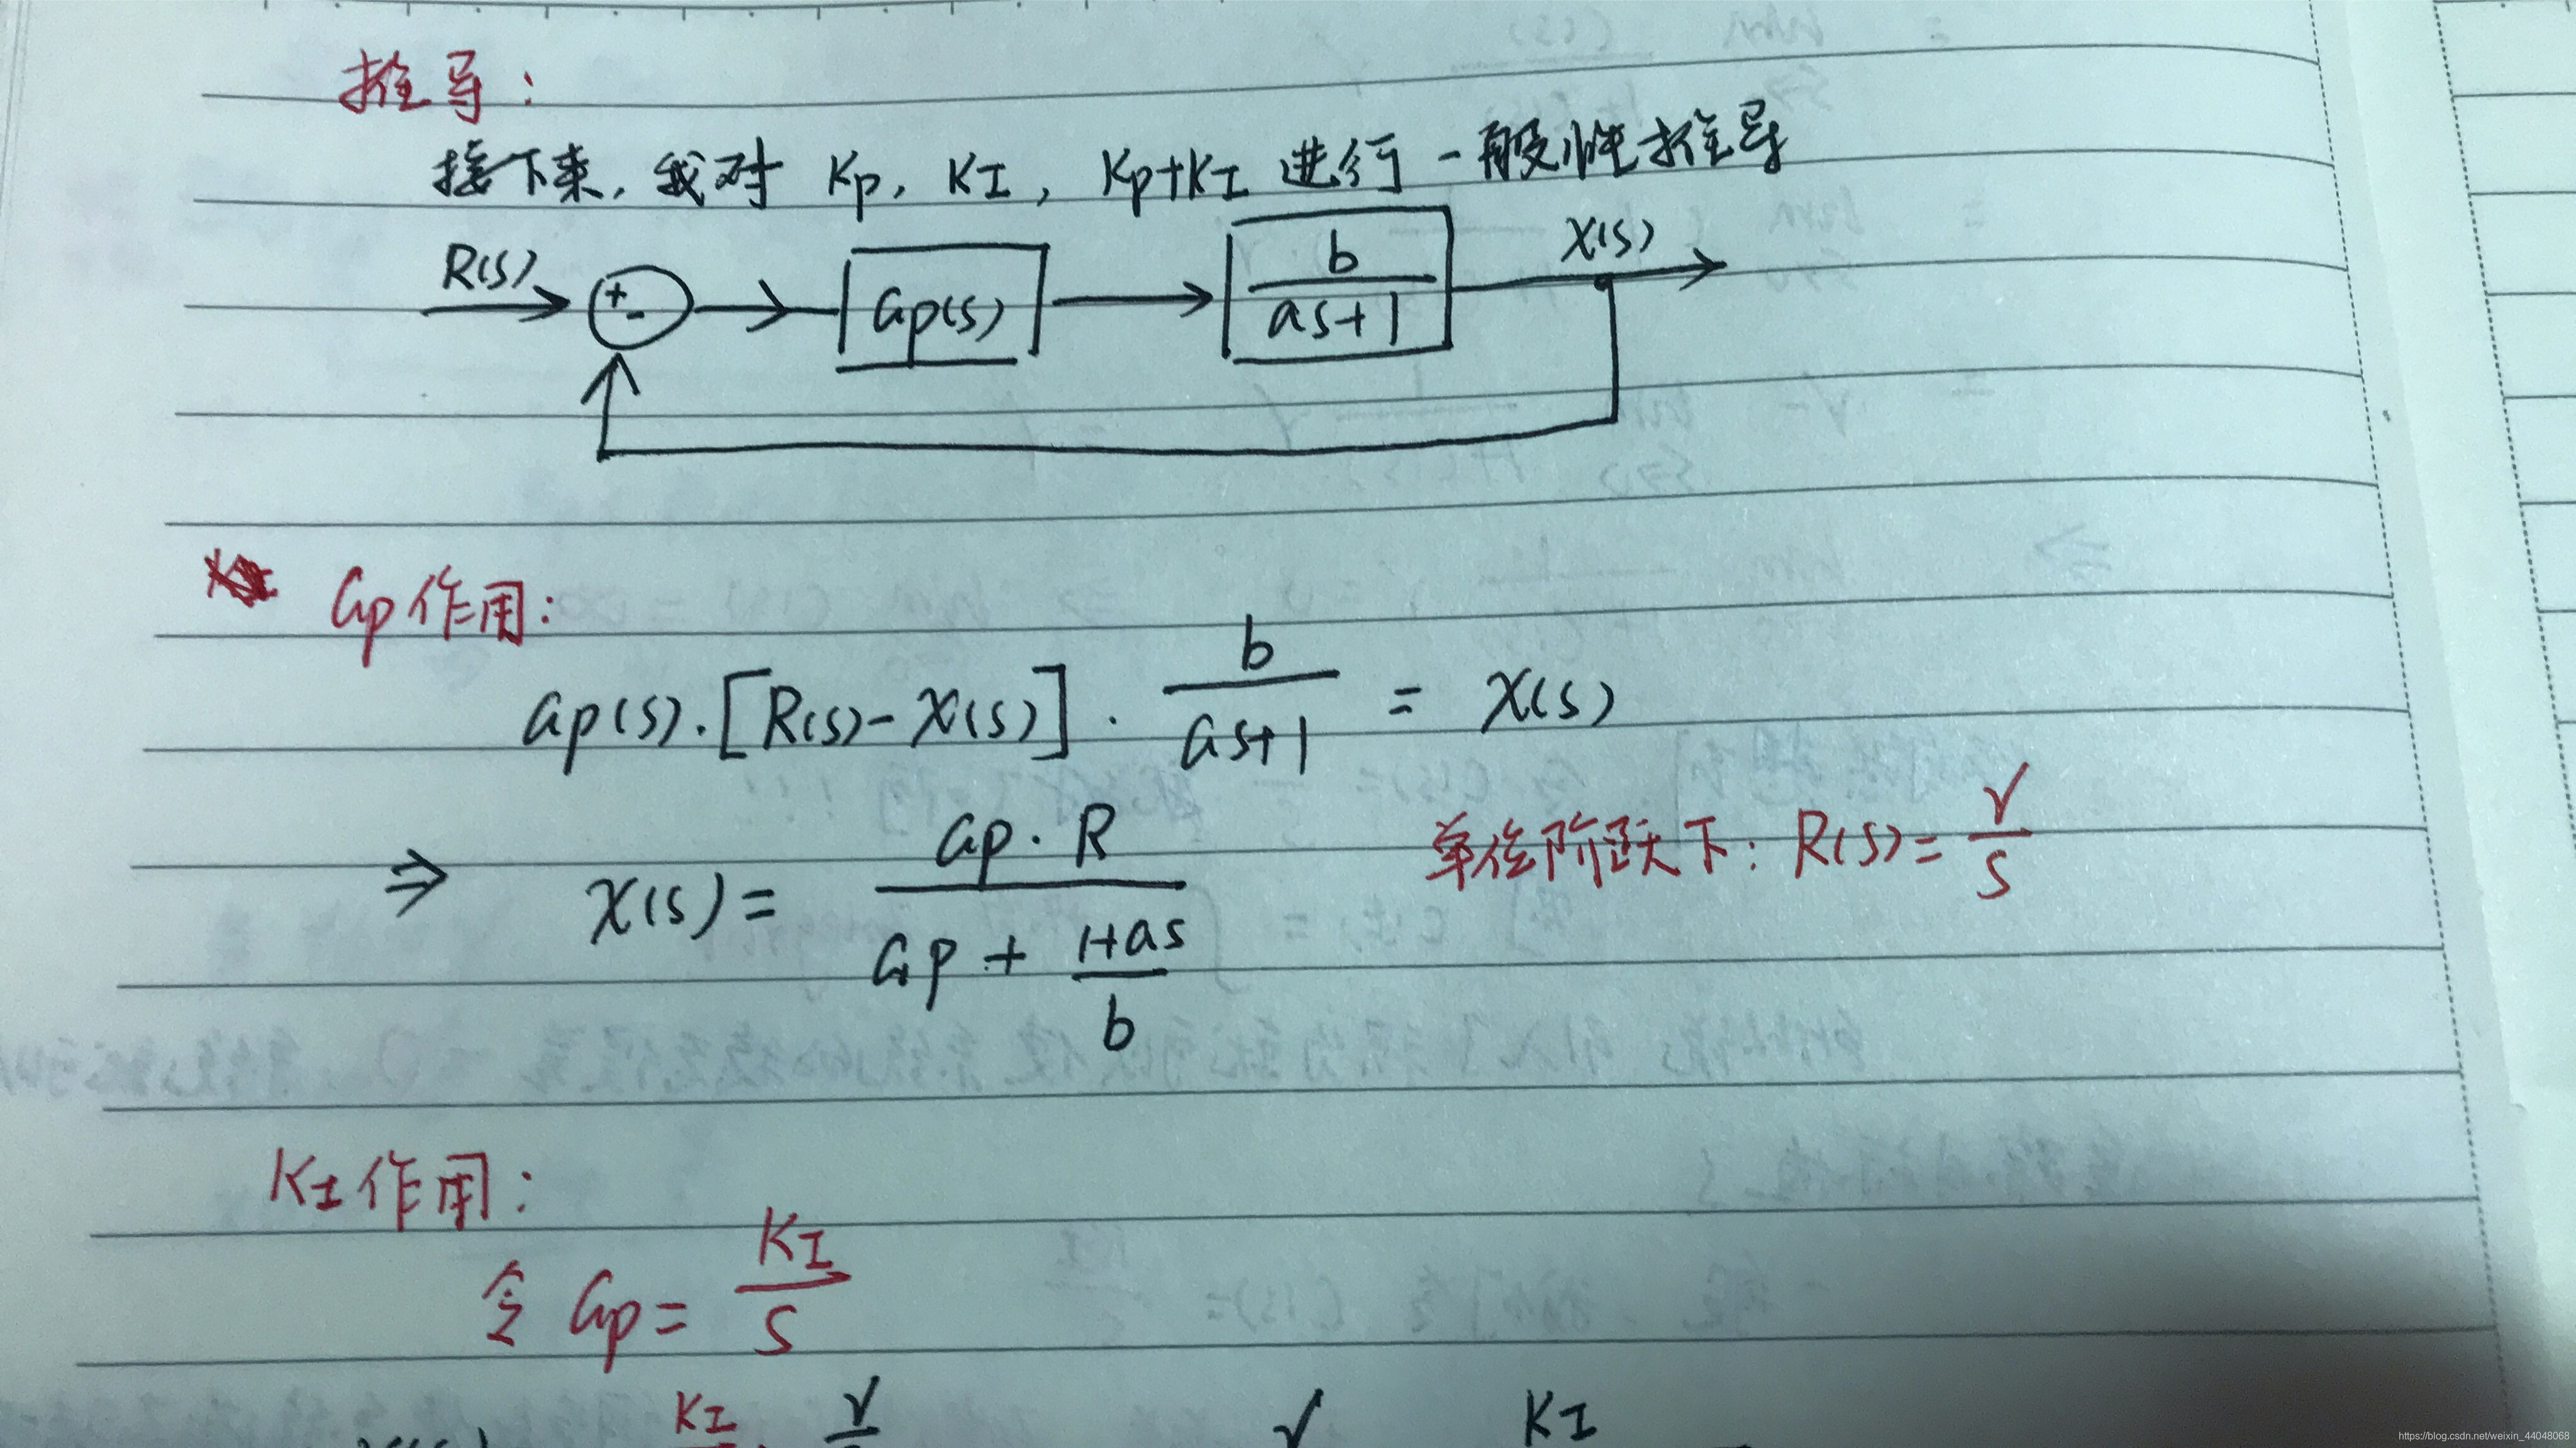 推导：
接下来，我对 Kp，KI，Kp+KI 进行一般性推导
R(s) + - Gp(s) b/(as+1) X(s)
Gp作用：
Gp(s)·[R(s)-X(s)]· b/(as+1) = X(s)
⇒ X(s) = Gp·R/(Gp + (1+as)/b) 单位阶跃下：R(s) = r/s
KI作用：
令 Gp = KI/s
KI r r KI
https://blog.csdn.net/weixin_44048068